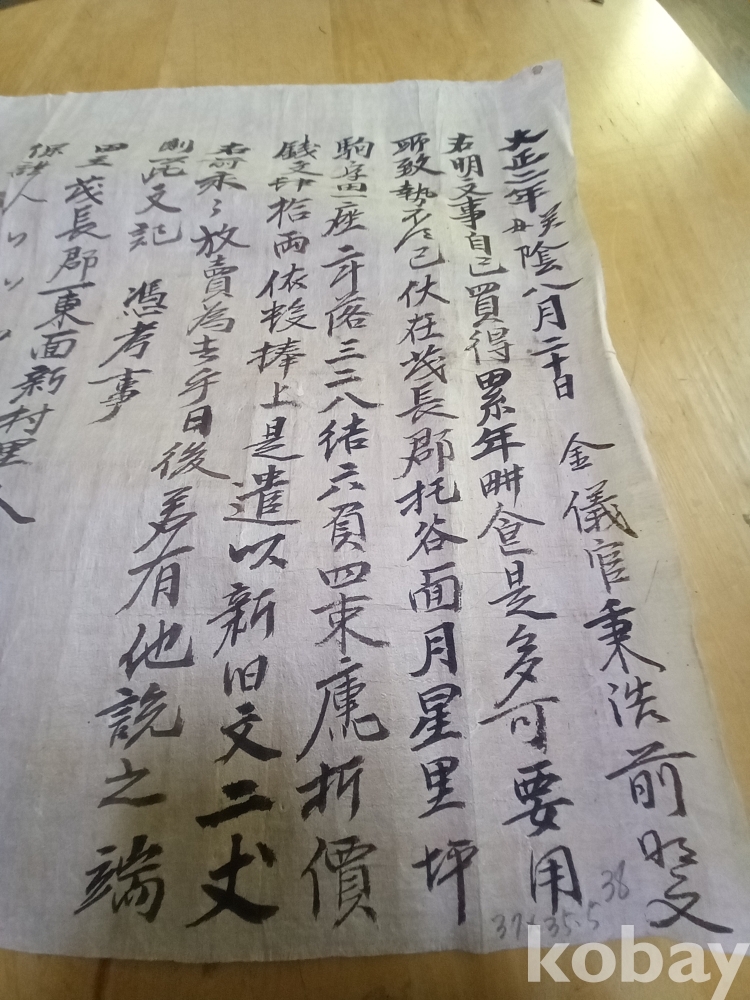 大正二年癸丑陰八月二十日 金儀官秉浩前明文
右明文事自己買得累年畊食是多可要用
所致執不得已伏在茂長郡托谷面月星里坪
駒字畓一座二斗落三二八結六負四束庫折價
錢文拾兩依數捧上是遣以新旧文二丈
右前永永放賣為去乎日後若有他說之端
則此文記 憑考事
畓主 茂長郡一東面新村里
保證人
38
37×35.5
kobay